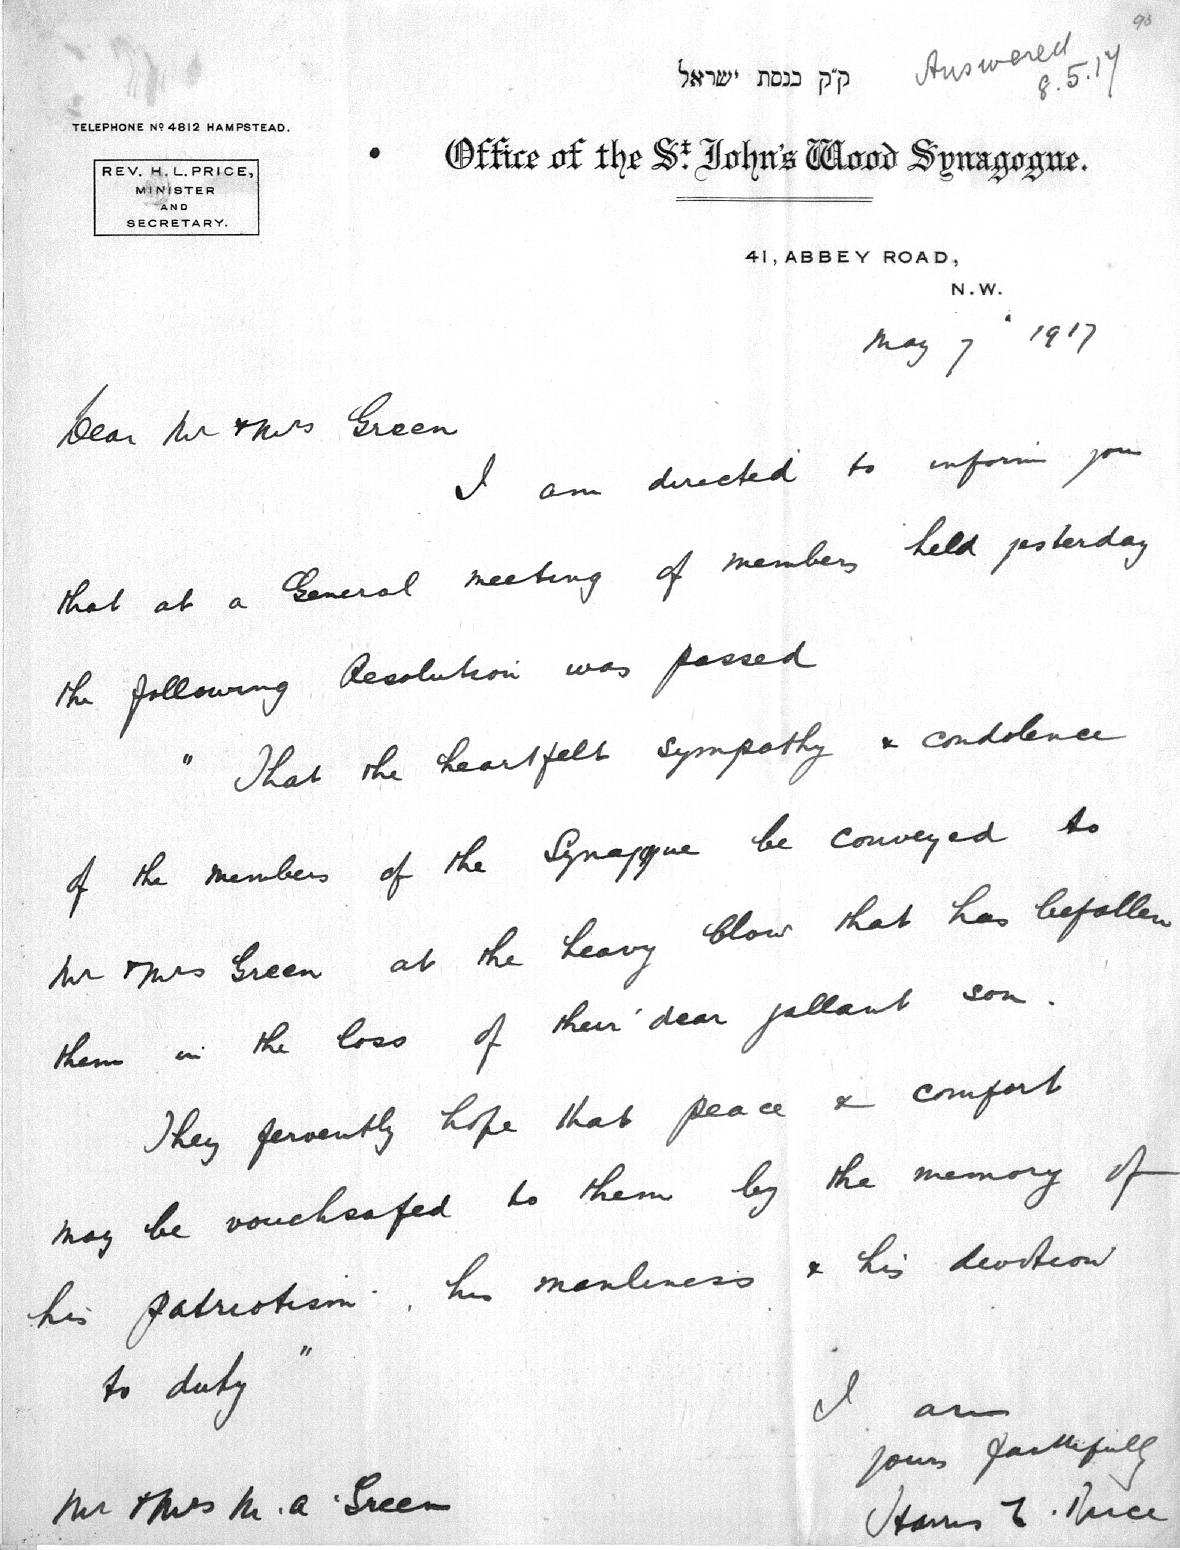 93
Answered
8.5.17
ק״ק כנסת ישראל
TELEPHONE Nº 4812 HAMPSTEAD.
REV. H. L. PRICE,
MINISTER
AND
SECRETARY.
Office of the St. John's Wood Synagogue.
41, ABBEY ROAD,
N.W.
May 7 1917
Dear Mr & Mrs Green
I am directed to inform you
that at a General meeting of members held yesterday
the following Resolution was passed
" That the heartfelt sympathy & condolence
of the members of the Synagogue be conveyed to
Mr & Mrs Green at the heavy blow that has befallen
them in the loss of their dear gallant son.
They fervently hope that peace & comfort
may be vouchsafed to them by the memory of
his patriotism, his manliness & his devotion
to duty "
I am
yours faithfully
Harris L. Price
Mr & Mrs M. A. Green